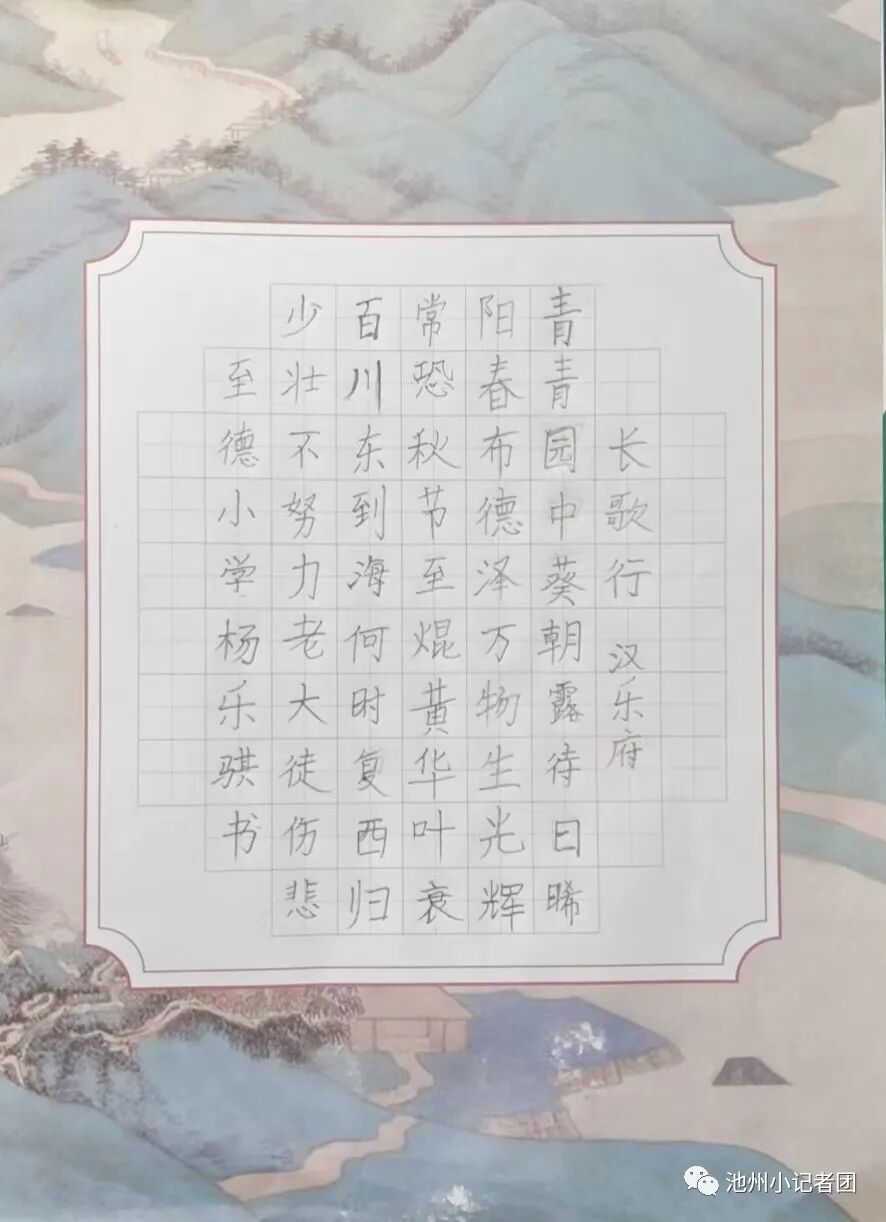 长歌行 汉乐府
青青园中葵朝露待日晞
阳春布德泽万物生光辉
常恐秋节至焜黄华叶衰
百川东到海何时复西归
少壮不努力老大徒伤悲
至德小学杨乐骐书
池州小记者团